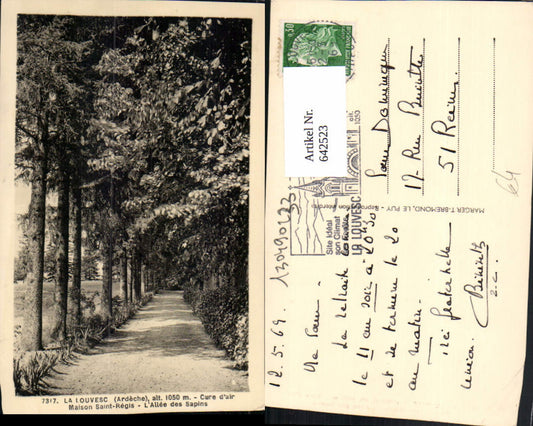 7317. LA LOUVESC (Ardèche), alt. 1050 m. - Cure d'air
Maison Saint-Régis - L'Allée des Sapins
0,30
Artikel Nr.
642523
alt.
1050
Site Idéal
son Climat
LA LOUVESC
MARGERIT-BREMOND, LE PUY - Reproduction interdite
Sœur Dominique
17 Rue
51 Reims
64
1304901233
12.5.69.
Ma Sœur.
La retraite
le 11 au soir à 20h30
et se termine le 20
au matin.